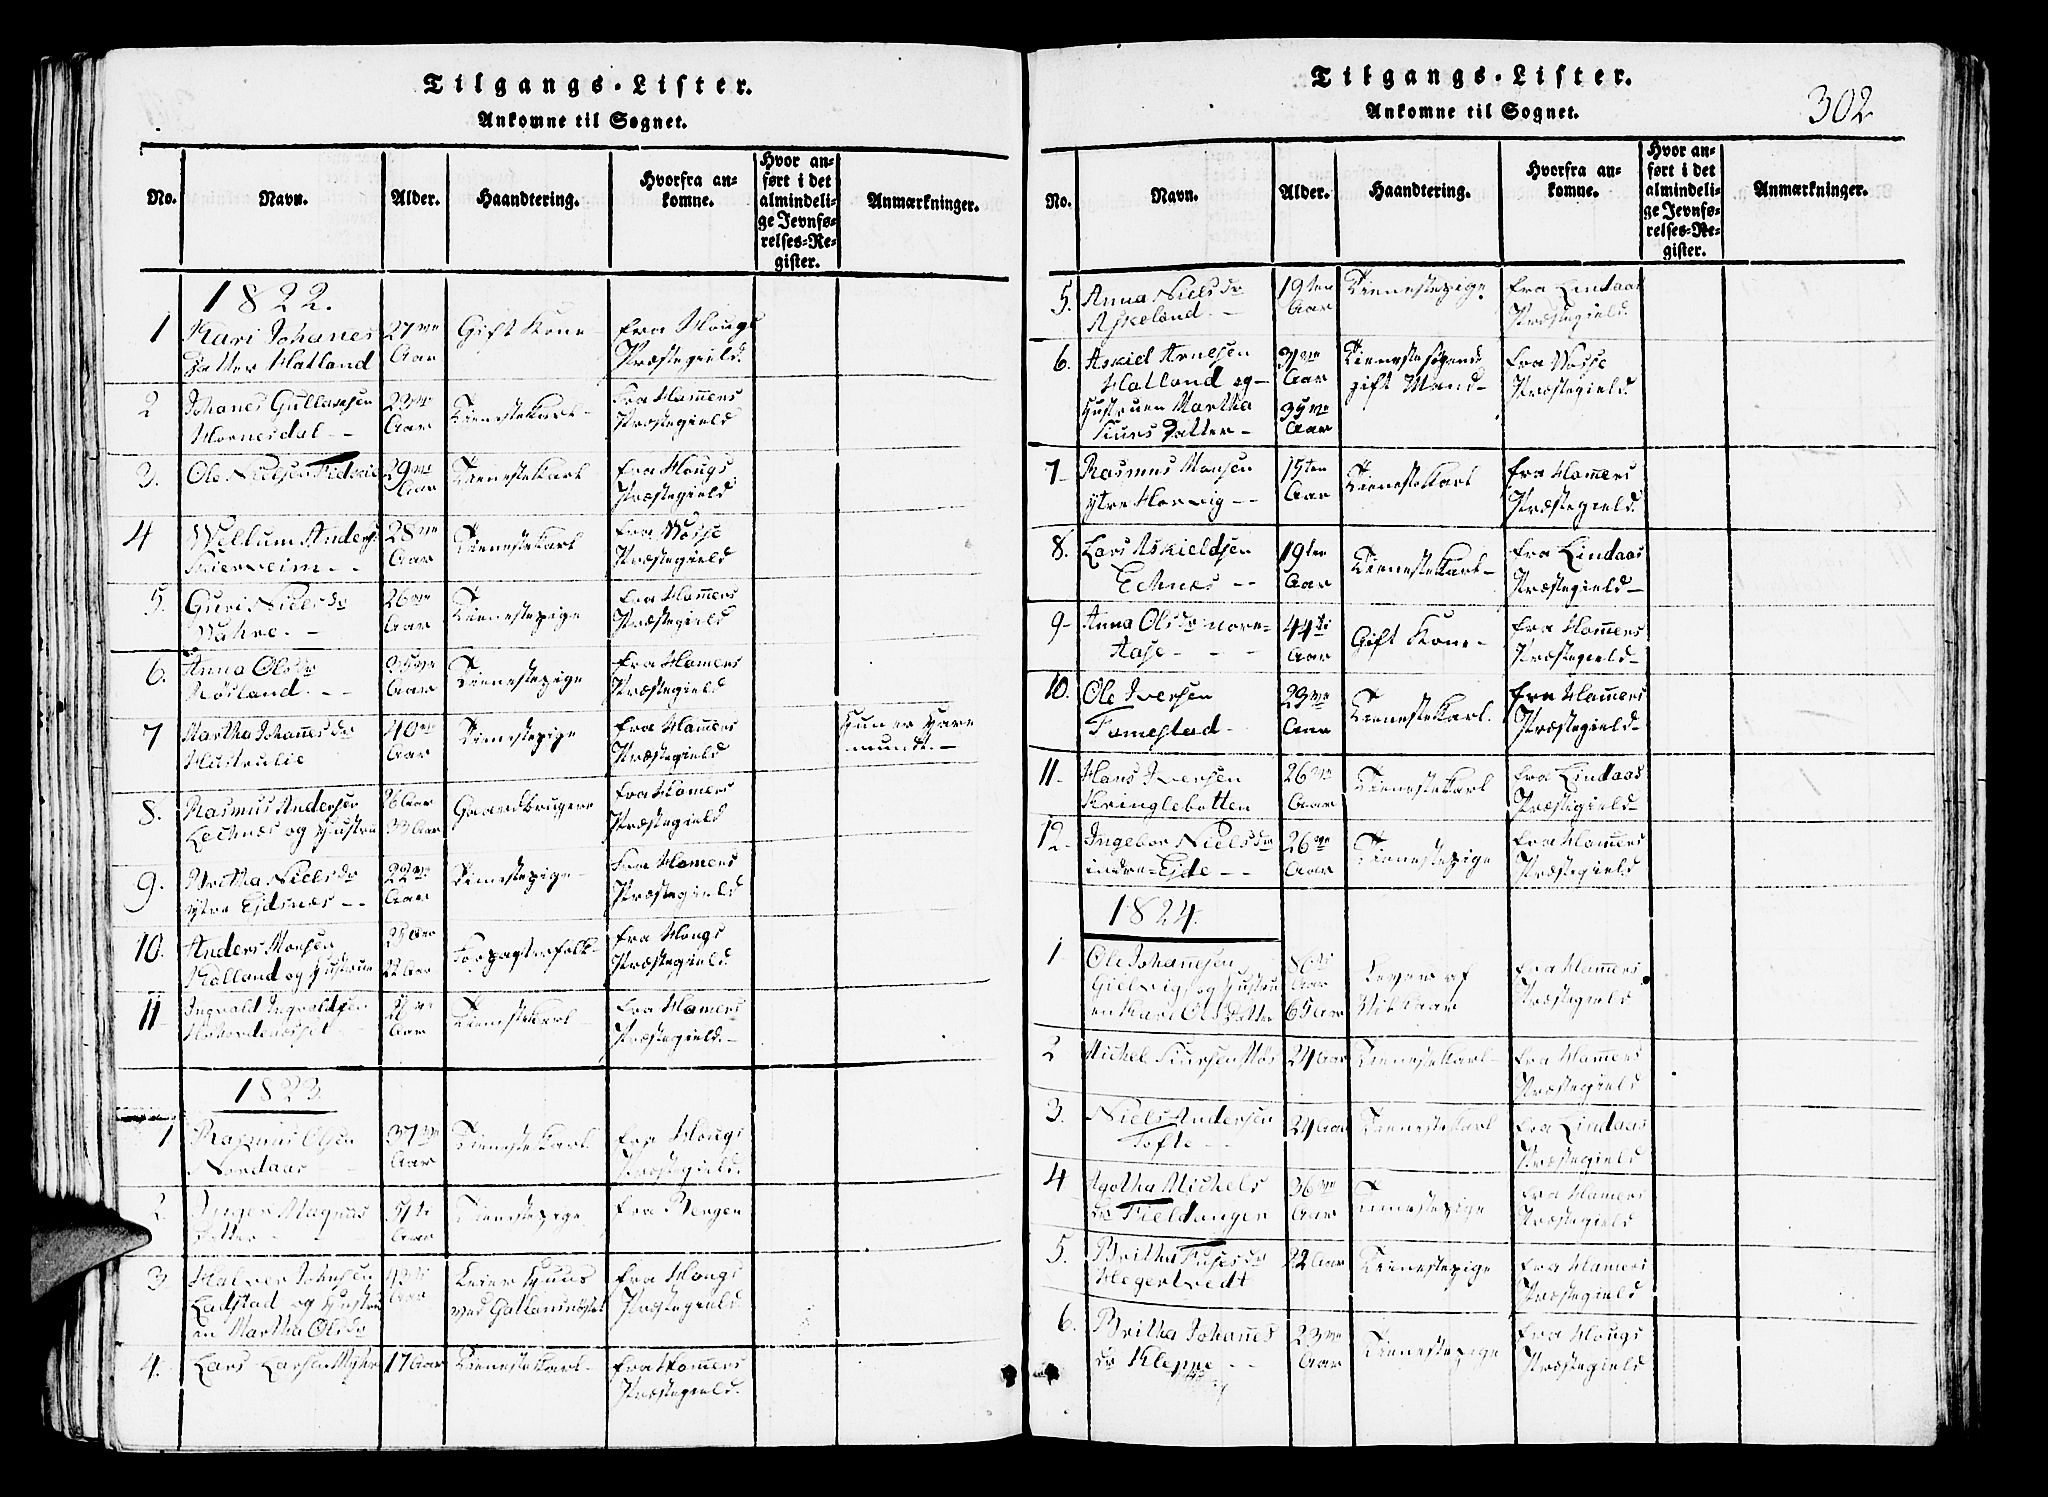 Tilgangs-Lister.
Ankomne til Sognet.
No. Navn. Alder. Haandtering. Hvorfra ankomne. Hvor anført i det almindelige Jevnførelses-Register. Anmærkninger.
1822.
1 Kari Johanes Datter Hatland 27 Aar Gift Kone fra Hougs Præstegield.
2 Johanes Gullaksen Hornesdal 23 Aar Tienestekarl fra Hamers Præstegield
3. Ole Nielsen 29 Aar Tienestekarl fra Hougs Præstegield
4 Willum Anders. 28 Aar Tienestekarl fra Wosse Præstegield
5. Guri Niels dr 26 Aar Tienestepige fra Hamers Præstegield
6. Anna Ols dr Røsland. Aar Tienestepige fra Hamers Præstegield
7 Martha Johannes dr 40 Aar Tienestepige fra Hamers Præstegield Hun er
8. Rasmus Andersen og Hustru 26 Aar 33 Aar Gaardbrugere fra Hamers Præstegield
9. Britha Niels dr ytre Eidsnæs 22 Aar Tienestepige fra Hamers Præstegield
10. Anders Monsen og Hustrue Aar 22 Aar Forpagterfolk fra Hougs Præstegield
11 Ingvald Ingvaldsen Aar Tienestekarl fra Hamers Præstegield.
1823
1 Rasmus Olsen Nordaas 37 Aar Tienestekarl fra Hougs Præstegield.
2. Inger Magnus Datter Aar Tienestepige fra Bergen
3 Halver Johnsen Ladstad og Hustruen Martha Ols dr 43 Aar Leier Huus ved fra Hougs Præstegield
4. Lars Larsen 17 Aar Tienestekarl fra Hamers Præstegield.
Tilgangs-Lister.
Ankomne til Sognet.
302
No. Navn. Alder. Haandtering. Hvorfra ankomne. Hvor anført i det almindelige Jevnførelses-Register. Anmærkninger.
5. Anna Niels dr Askeland. 19ten Aar Tienestepige fra Lindaas Præstegield.
6. Askiel Arnesen Hatland og Hustruen Martha Siurs Datter Aar 35 Aar gift Mand fra Wosse Præstegield
7 Rasmus Monsen ytre Aar Tienestekarl fra Hamers Præstegield.
8. Lars Askieldsen Echnæs 19ten Aar Tienestekarl fra Lindaas Præstegield
9 Anna Ols dr nore Aase 44 Aar Gift Kone fra Hamers Præstegield
10. Ole Iversen 23 Aar Tienestekarl. fra Hamers Præstegield
11. Hans Iversen Kringlebotten 26 Aar Tienestekarl fra Lindaas Præstegield
12. Ingebor Niels dr indre Eide 26 Aar Tienestepige fra Hamers Præstegield
1824.
1 Ole Johannesen og Hustruen Kari Ols Datter Aar Lever af Vilkaar fra Hamers Præstegield
2 Michel Siursen 24 Aar Tienestekarl fra Hamers Præstegield
3. Niels Andersen Tofte 24 Aar Tienestekarl fra Lindaas Præstegield
4 Agotha Michels dr Fieldanger 36 Aar Tienestepige fra Hamers Præstegield
5. Britha dr 22 Aar Tienestepige fra Hamers Præstegield
6. Britha Johannes dr Kleppe 23 Aar Tienestepige fra Hougs Præstegield